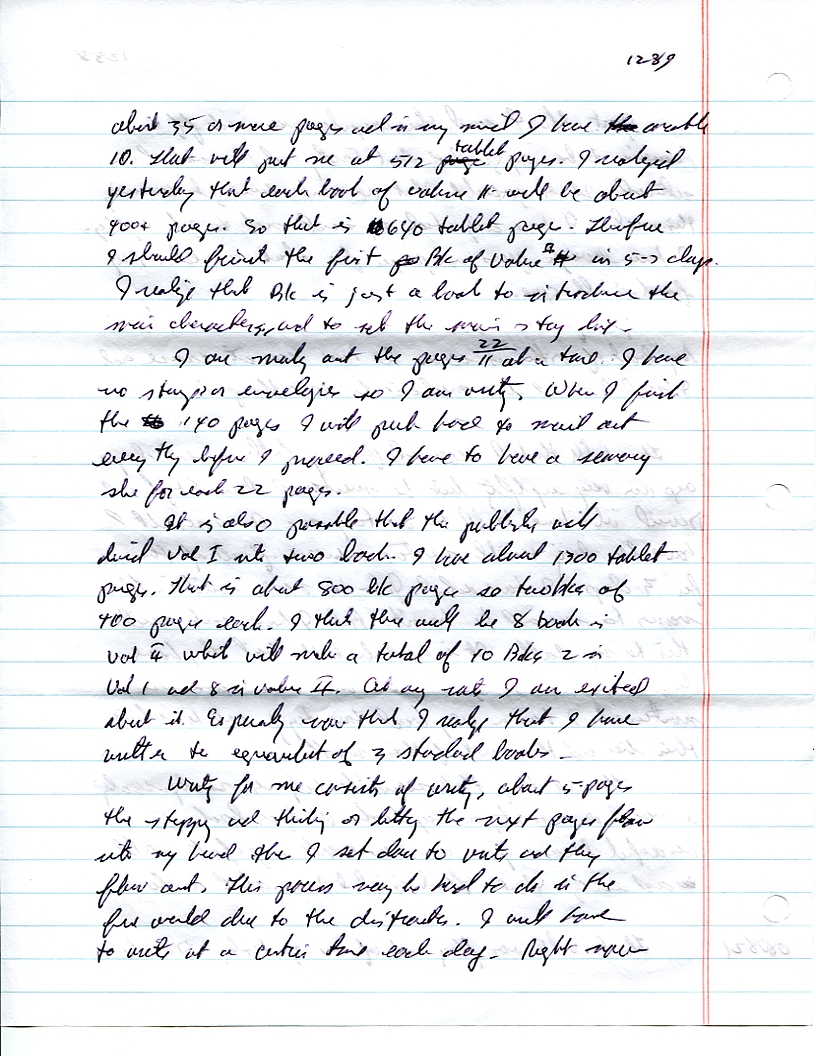 1289
about 35 or more pages and in my mind I have another
10. That will put me at 512 tablet pages. I realized
yesterday that each book of volume II will be about
400+ pages. So that is 640 tablet pages. Therefore
I should finish the first Bk of Volume II in 5-7 days.
I realize that Bk is just a book to introduce the
main characters, and to set the main story line.
I am mailing out the pages 22 at a time. I have
no stamps or envelopes so I am waiting. When I finish
the 140 pages I will push hard to mail out
every thing before I proceed. I have to have a summary
she for each 22 pages.
It is also possible that the publisher will
divid Vol I into two books. I have about 1300 tablet
pages. That is about 800 bk pages so two bks of
400 pages each. I think there will be 8 books in
Vol II which will make a total of 10 Bks 2 in
Vol 1 and 8 in volume II. At any rate I am excited
about it. Especially now that I realize that I have
written the equivalent of 3 standard books.
Writing for me consists of writing, about 5 pages
the stopping and thinking or letting the next pages flow
into my head then I set down to write and they
flow out. This process may be hard to do in the
free world due to the distractions. I will have
to write at a certain time each day. Right now